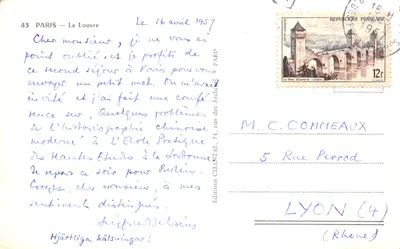 43 PARIS - Le Louvre
Le 16 avril 1957
Cher monsieur, je ne vous ai
point oublié, et je profite de
ce second séjour à Paris pour vous
envoyer un petit mot. On m'avait
invité et j'ai fait une confé
rence sur "Quelques problèmes
de l'historiographie chinoise
moderne" à l'École Pratique
des Hautes Etudes à la Sorbonne.
Je repars ce soir pour
Croyez, cher monsieur, à mes
sentiments distingués.
Hjärtliga hälsningar!
Editions CHANTAL, 74, rue des Archives PARIS
REPUBLIQUE FRANÇAISE
12f
M. C. COMMEAUX
5 Rue Perrod
LYON (4)
(Rhône)